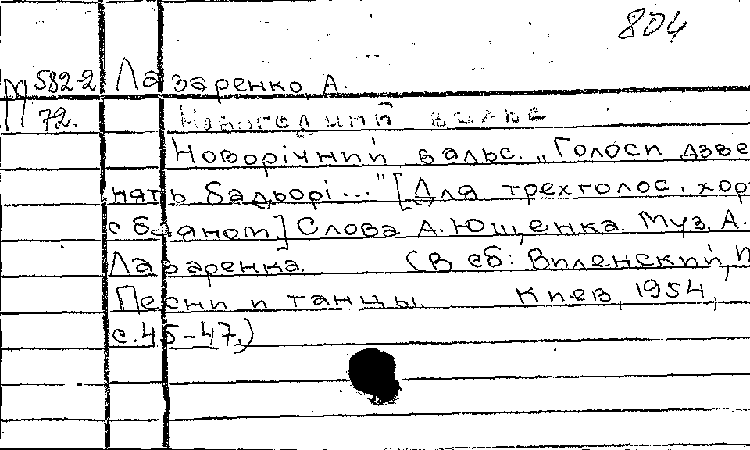 804
М 582-2 Лазаренко, А.
72. Новогодний вальс
Новорічний вальс. „Голоси дзве
нять бадьорі..." [Для трехголос. хор
с баяном] Слова А. Ющенка Муз. А.
Лазаренка. (В сб: Виленский, И
Песни и танцы. Киев, 1954,
с. 45-47.)